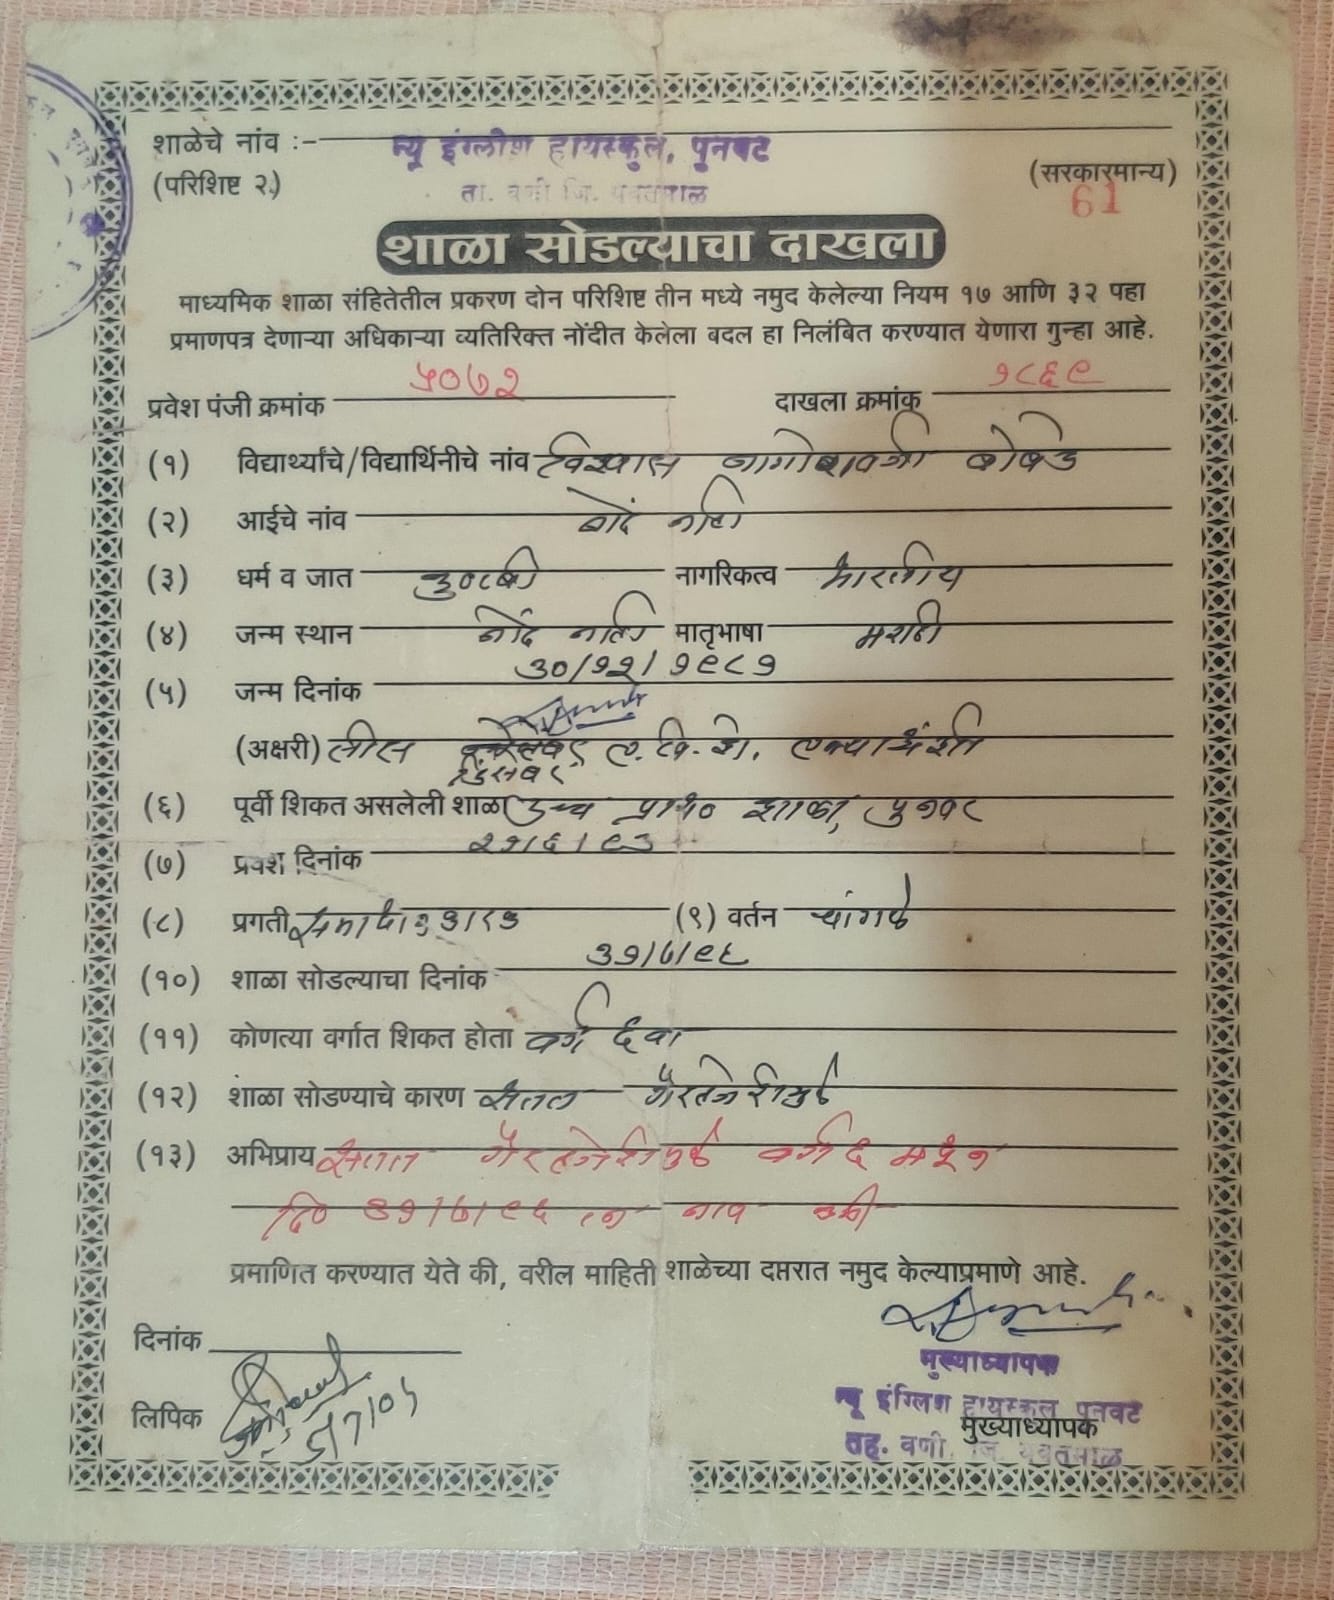 शाळेचे नांव :- न्यू इंग्लीश हायस्कुल, पुनवट
(परिशिष्ट २.) ता. वणी जि. यवतमाळ (सरकारमान्य)
61
शाळा सोडल्याचा दाखला
माध्यमिक शाळा संहितेतील प्रकरण दोन परिशिष्ट तीन मध्ये नमुद केलेल्या नियम १७ आणि ३२ पहा
प्रमाणपत्र देणाऱ्या अधिकाऱ्या व्यतिरिक्त नोंदीत केलेला बदल हा निलंबित करण्यात येणारा गुन्हा आहे.
प्रवेश पंजी क्रमांक ५०७२ दाखला क्रमांक १८६९
(१) विद्यार्थ्यांचे/विद्यार्थिनीचे नांव विश्वास नागोरावजी बोबडे
(२) आईचे नांव नोंद नाही
(३) धर्म व जात कुणबी नागरिकत्व भारतीय
(४) जन्म स्थान नोंद नाही मातृभाषा मराठी
(५) जन्म दिनांक ३०/१२/१९८१
(अक्षरी) तीस डिसेंबर ए. वि. शे. एक्याऐंशी
(६) पूर्वी शिकत असलेली शाळा उच्च प्राथ० शाळा, पुनवट
(७) प्रवेश दिनांक २१/६/९३
(८) प्रगती समाधानकारक (९) वर्तन चांगले
(१०) शाळा सोडल्याचा दिनांक ३१/७/९६
(११) कोणत्या वर्गात शिकत होता वर्ग ८ वा
(१२) शाळा सोडण्याचे कारण सतत गैरहजेरीमुळे
(१३) अभिप्राय सतत गैरहजेरीमुळे वर्ग ८ मधून
दि० ३१/७/९६ ला नाव कमी
प्रमाणित करण्यात येते की, वरील माहिती शाळेच्या दप्तरात नमुद केल्याप्रमाणे आहे.
दिनांक
मुख्याध्यापक
न्यू इंग्लिश हायस्कुल पुनवट
लिपिक मुख्याध्यापक
तह. वणी, जि. यवतमाळ